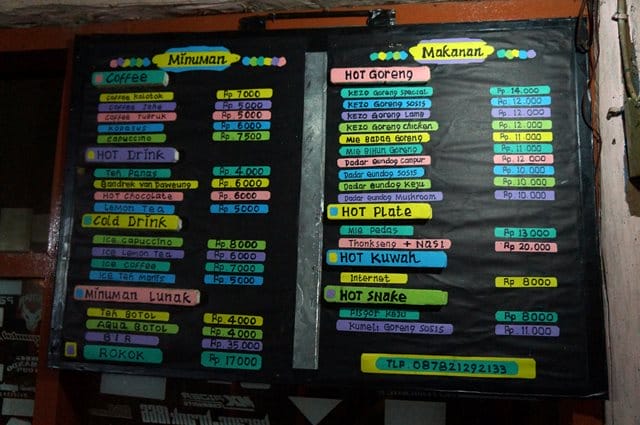 Minuman
Coffee
Coffee Kolotok Rp 7000
Coffee Jahe Rp 5000
Coffee Tubruk Rp 5000
Kopasus Rp 6000
Capuccino Rp 7500
HOT Drink
Teh Panas Rp 4.000
Bandrek van Daweung Rp 6000
HOT Chocolate Rp 6000
Lemon Tea Rp 5000
Cold Drink
Ice Capuccino Rp 8000
Ice Lemon Tea Rp 6000
Ice Coffee Rp 7000
Ice Teh Manis Rp 5000
Minuman Lunak
Teh Botol Rp 4000
Aqua Botol Rp 4000
BIR Rp 35000
ROKOK Rp 17000
Makanan
HOT Goreng
Kezo Goreng Special Rp 14.000
Kezo Goreng Sosis Rp 12.000
Kezo Goreng Lamp Rp 12.000
Kezo Goreng Chicken Rp 12.000
Mie Badag Goreng Rp 11.000
Mie Bihun Goreng Rp 11.000
Dadar Gundog Campur Rp 12.000
Dadar Gundog Sosis Rp 10.000
Dadar Gundog Keju Rp 10.000
Dadar Gundog Mushroom Rp 10.000
HOT Plate
Mie Pedas Rp 13.000
Thonkseng + Nasi Rp 20.000
HOT Kuwah
Internet Rp 8000
HOT Snake
Pisgor Keju Rp 8000
Kumeli Goreng Sosis Rp 11.000
TLP. 087821292133